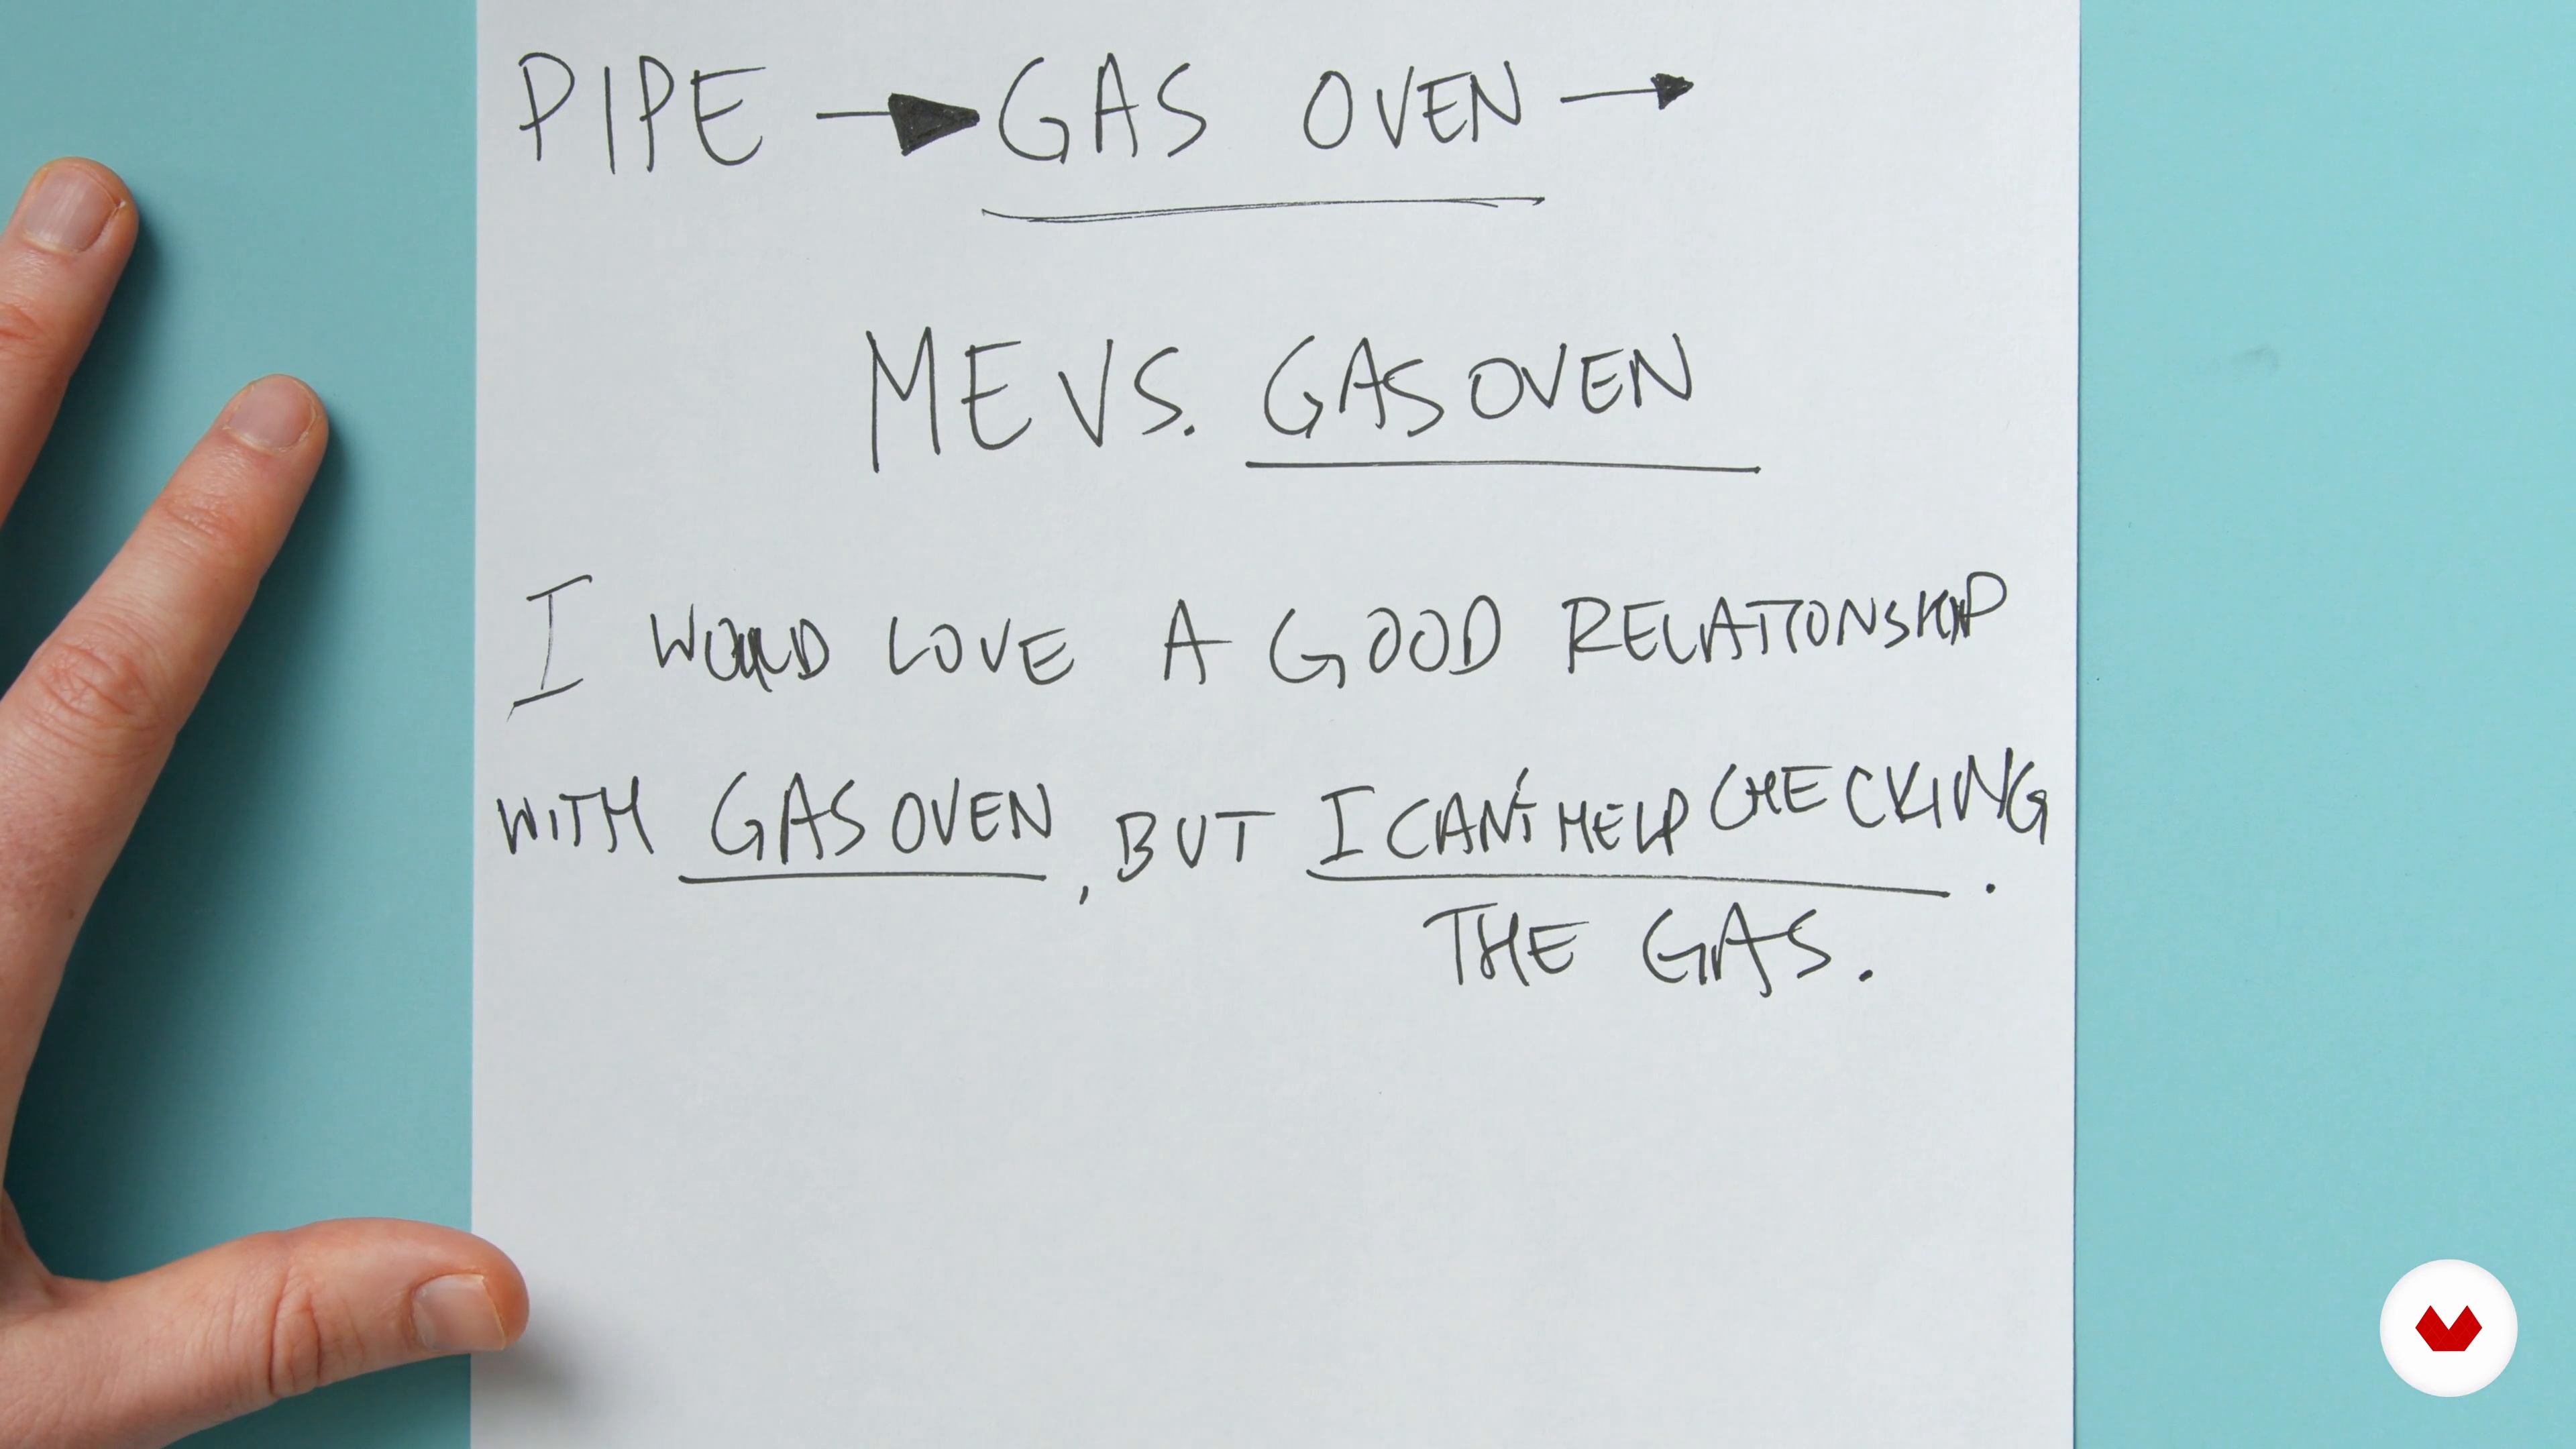 PIPE → GAS OVEN →
ME VS. GAS OVEN
I WOULD LOVE A GOOD RELATIONSHIP
WITH GAS OVEN, BUT I CAN'T HELP CHECKING.
THE GAS.